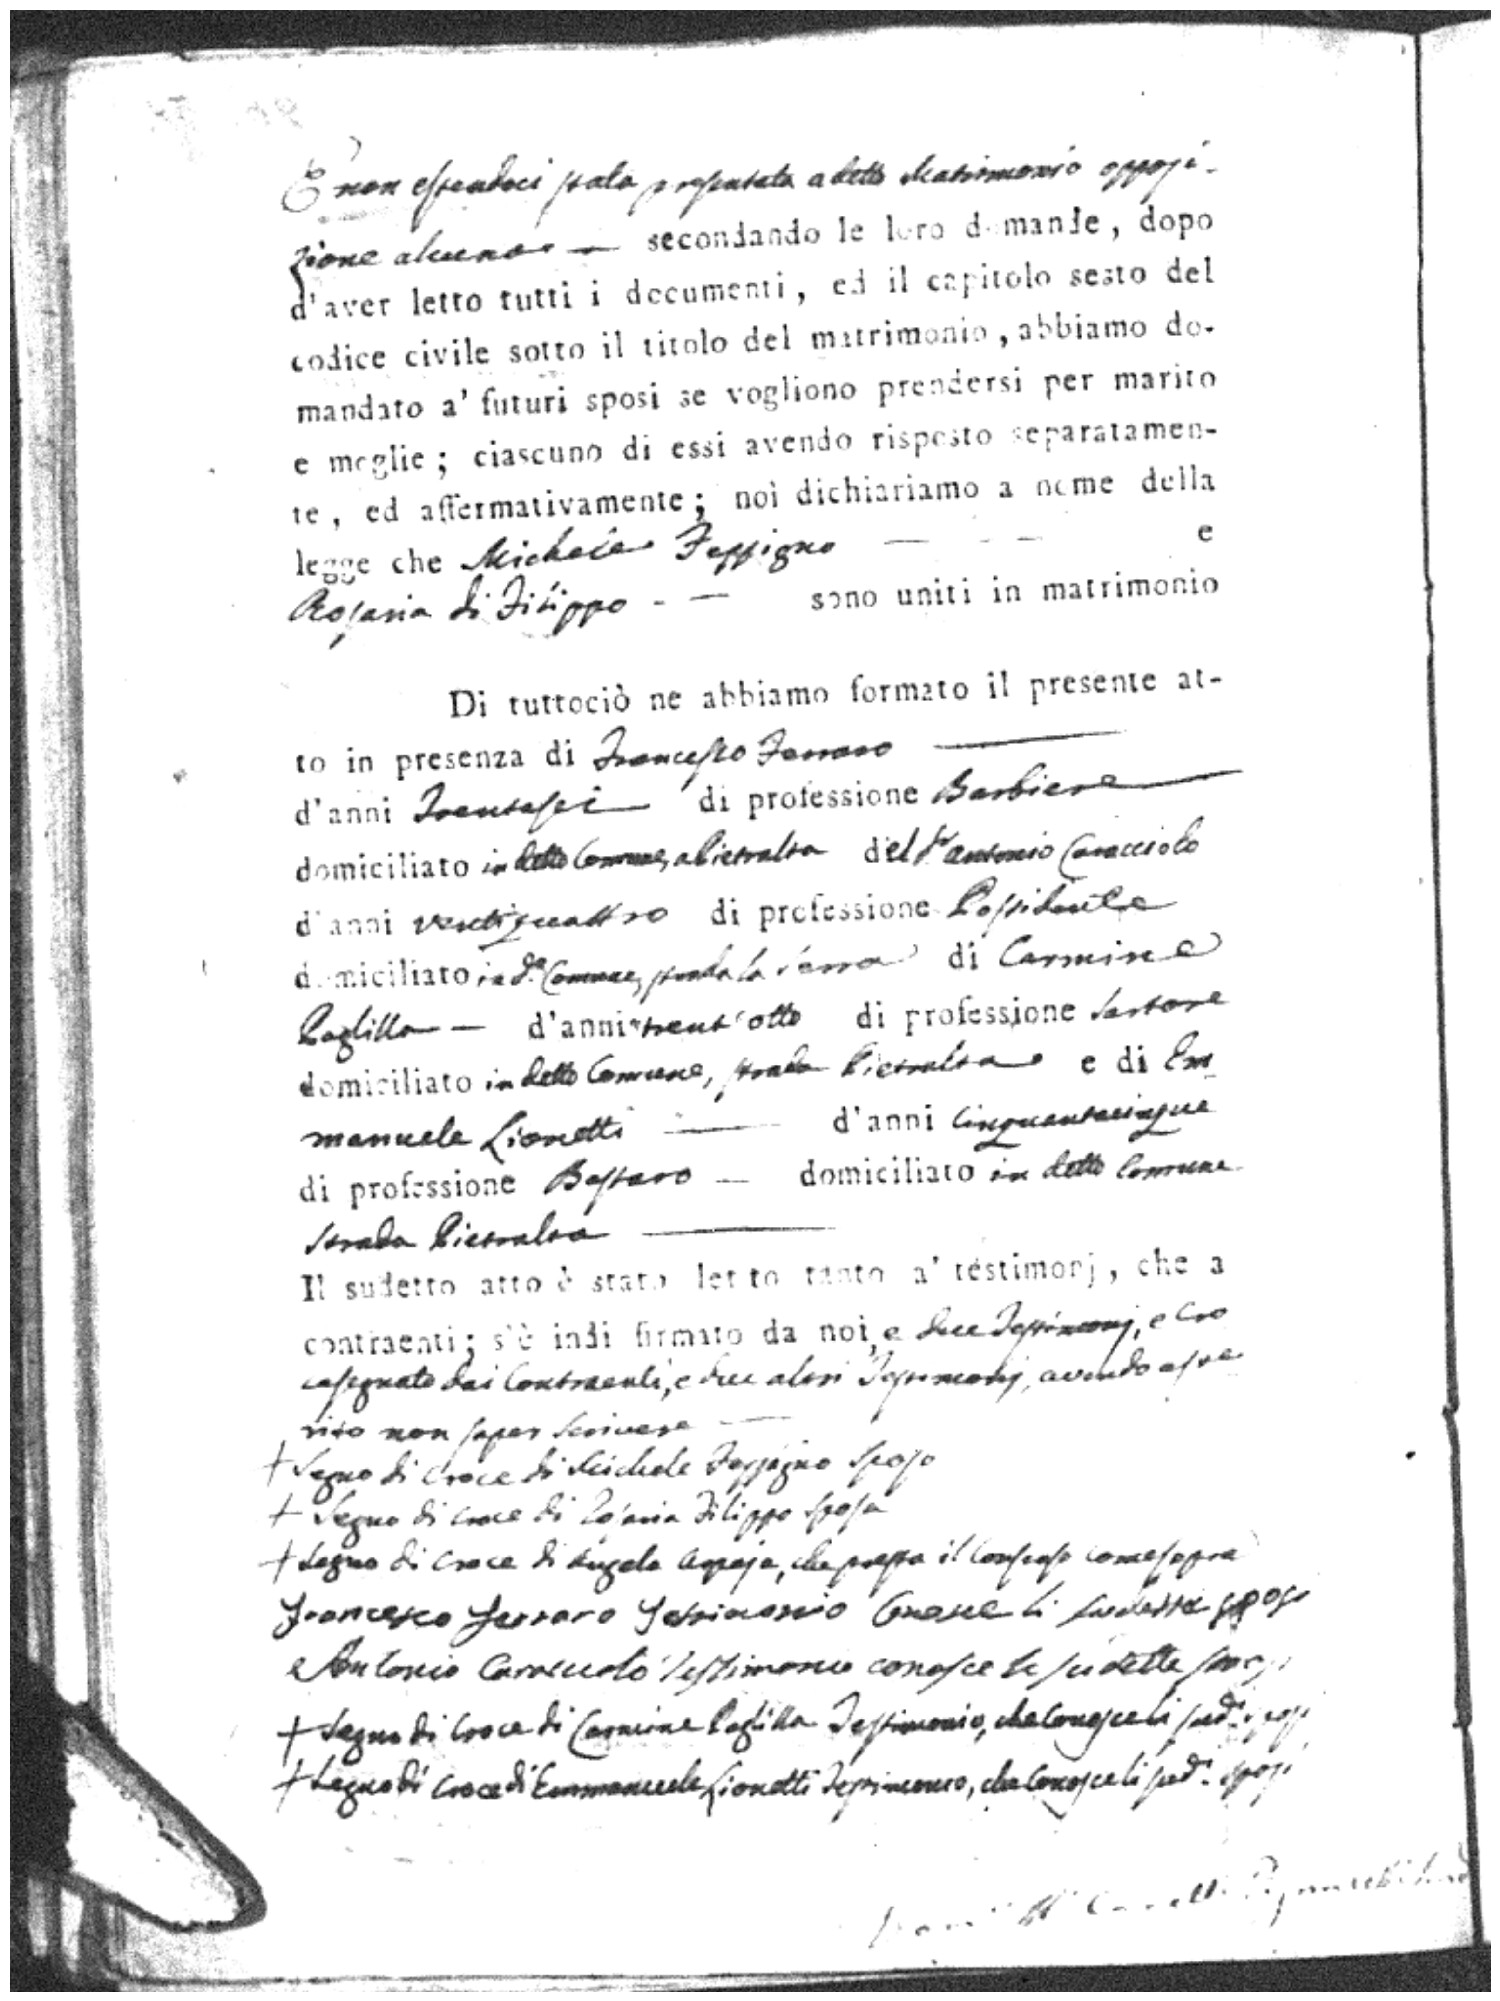 E non essendoci stata presentata a detto Matrimonio opposi-
zione alcuna — secondando le loro domande, dopo
d'aver letto tutti i documenti, ed il capitolo sesto del
codice civile sotto il titolo del matrimonio, abbiamo do-
mandato a' futuri sposi se vogliono prendersi per marito
e moglie; ciascuno di essi avendo risposto separatamen-
te, ed affermativamente; noi dichiariamo a nome della
legge che Michele Feppigno — — — e
Rosaria di Filippo - — sono uniti in matrimonio
Di tuttociò ne abbiamo formato il presente at-
to in presenza di Francesco Ferraro —
d'anni Trentasei — di professione Barbiere —
domiciliato in detto Comune, a Pietralta del Sr Antonio Caracciolo
d'anni ventiquattro di professione Possidente
domiciliato in do Comune, strada la Serra di Carmine
Paglilla — d'anni trent'otto di professione Sartore
domiciliato in detto Comune, strada Pietralta e di Em
manuele Lionetti — d'anni cinquantacinque
di professione Bastaro — domiciliato in detto Comune
Strada Pietralta —
Il sudetto atto è stato letto tanto a' testimorj, che a
contraenti; s'è indi firmato da noi, e due Testimonj, e cro
cesegnato dai Contraenti, e due altri Testimonj, avendo asse
rito non saper scrivere —
+ Segno di Croce di Michele Feppigno Sposo
+ Segno di Croce di Rosaria Filippo Sposa
+ Segno di Croce di Angela Arpaja, che presta il Consenso come sopra
Francesco Ferraro Testimonio Conosce li sudetti sposi
e Antonio Caracciolo Testimonio conosce li sudetti sposi
+ Segno di Croce di Carmine Paglilla Testimonio, che Conosce li sudi. sposi
+ Segno di Croce di Emmanuele Lionetti Testimonio, che Conosce li sudi. sposi